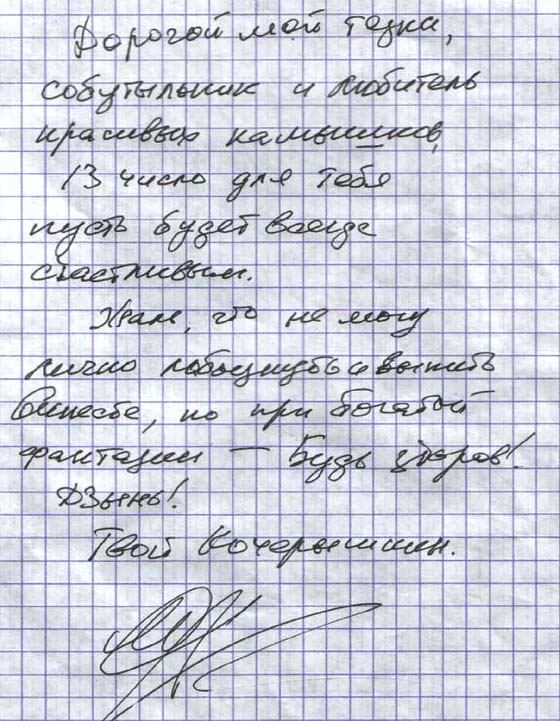 Дорогой мой тезка,
собутыльник и любитель
красивых камышков,
13 число для тебя
пусть будет всегда
счастливым.
Жаль, что не могу
лично и выпить
вместе, но при богатой
фантазии — Будь здоров!
Дзынь!
Твой Кочерышкин.